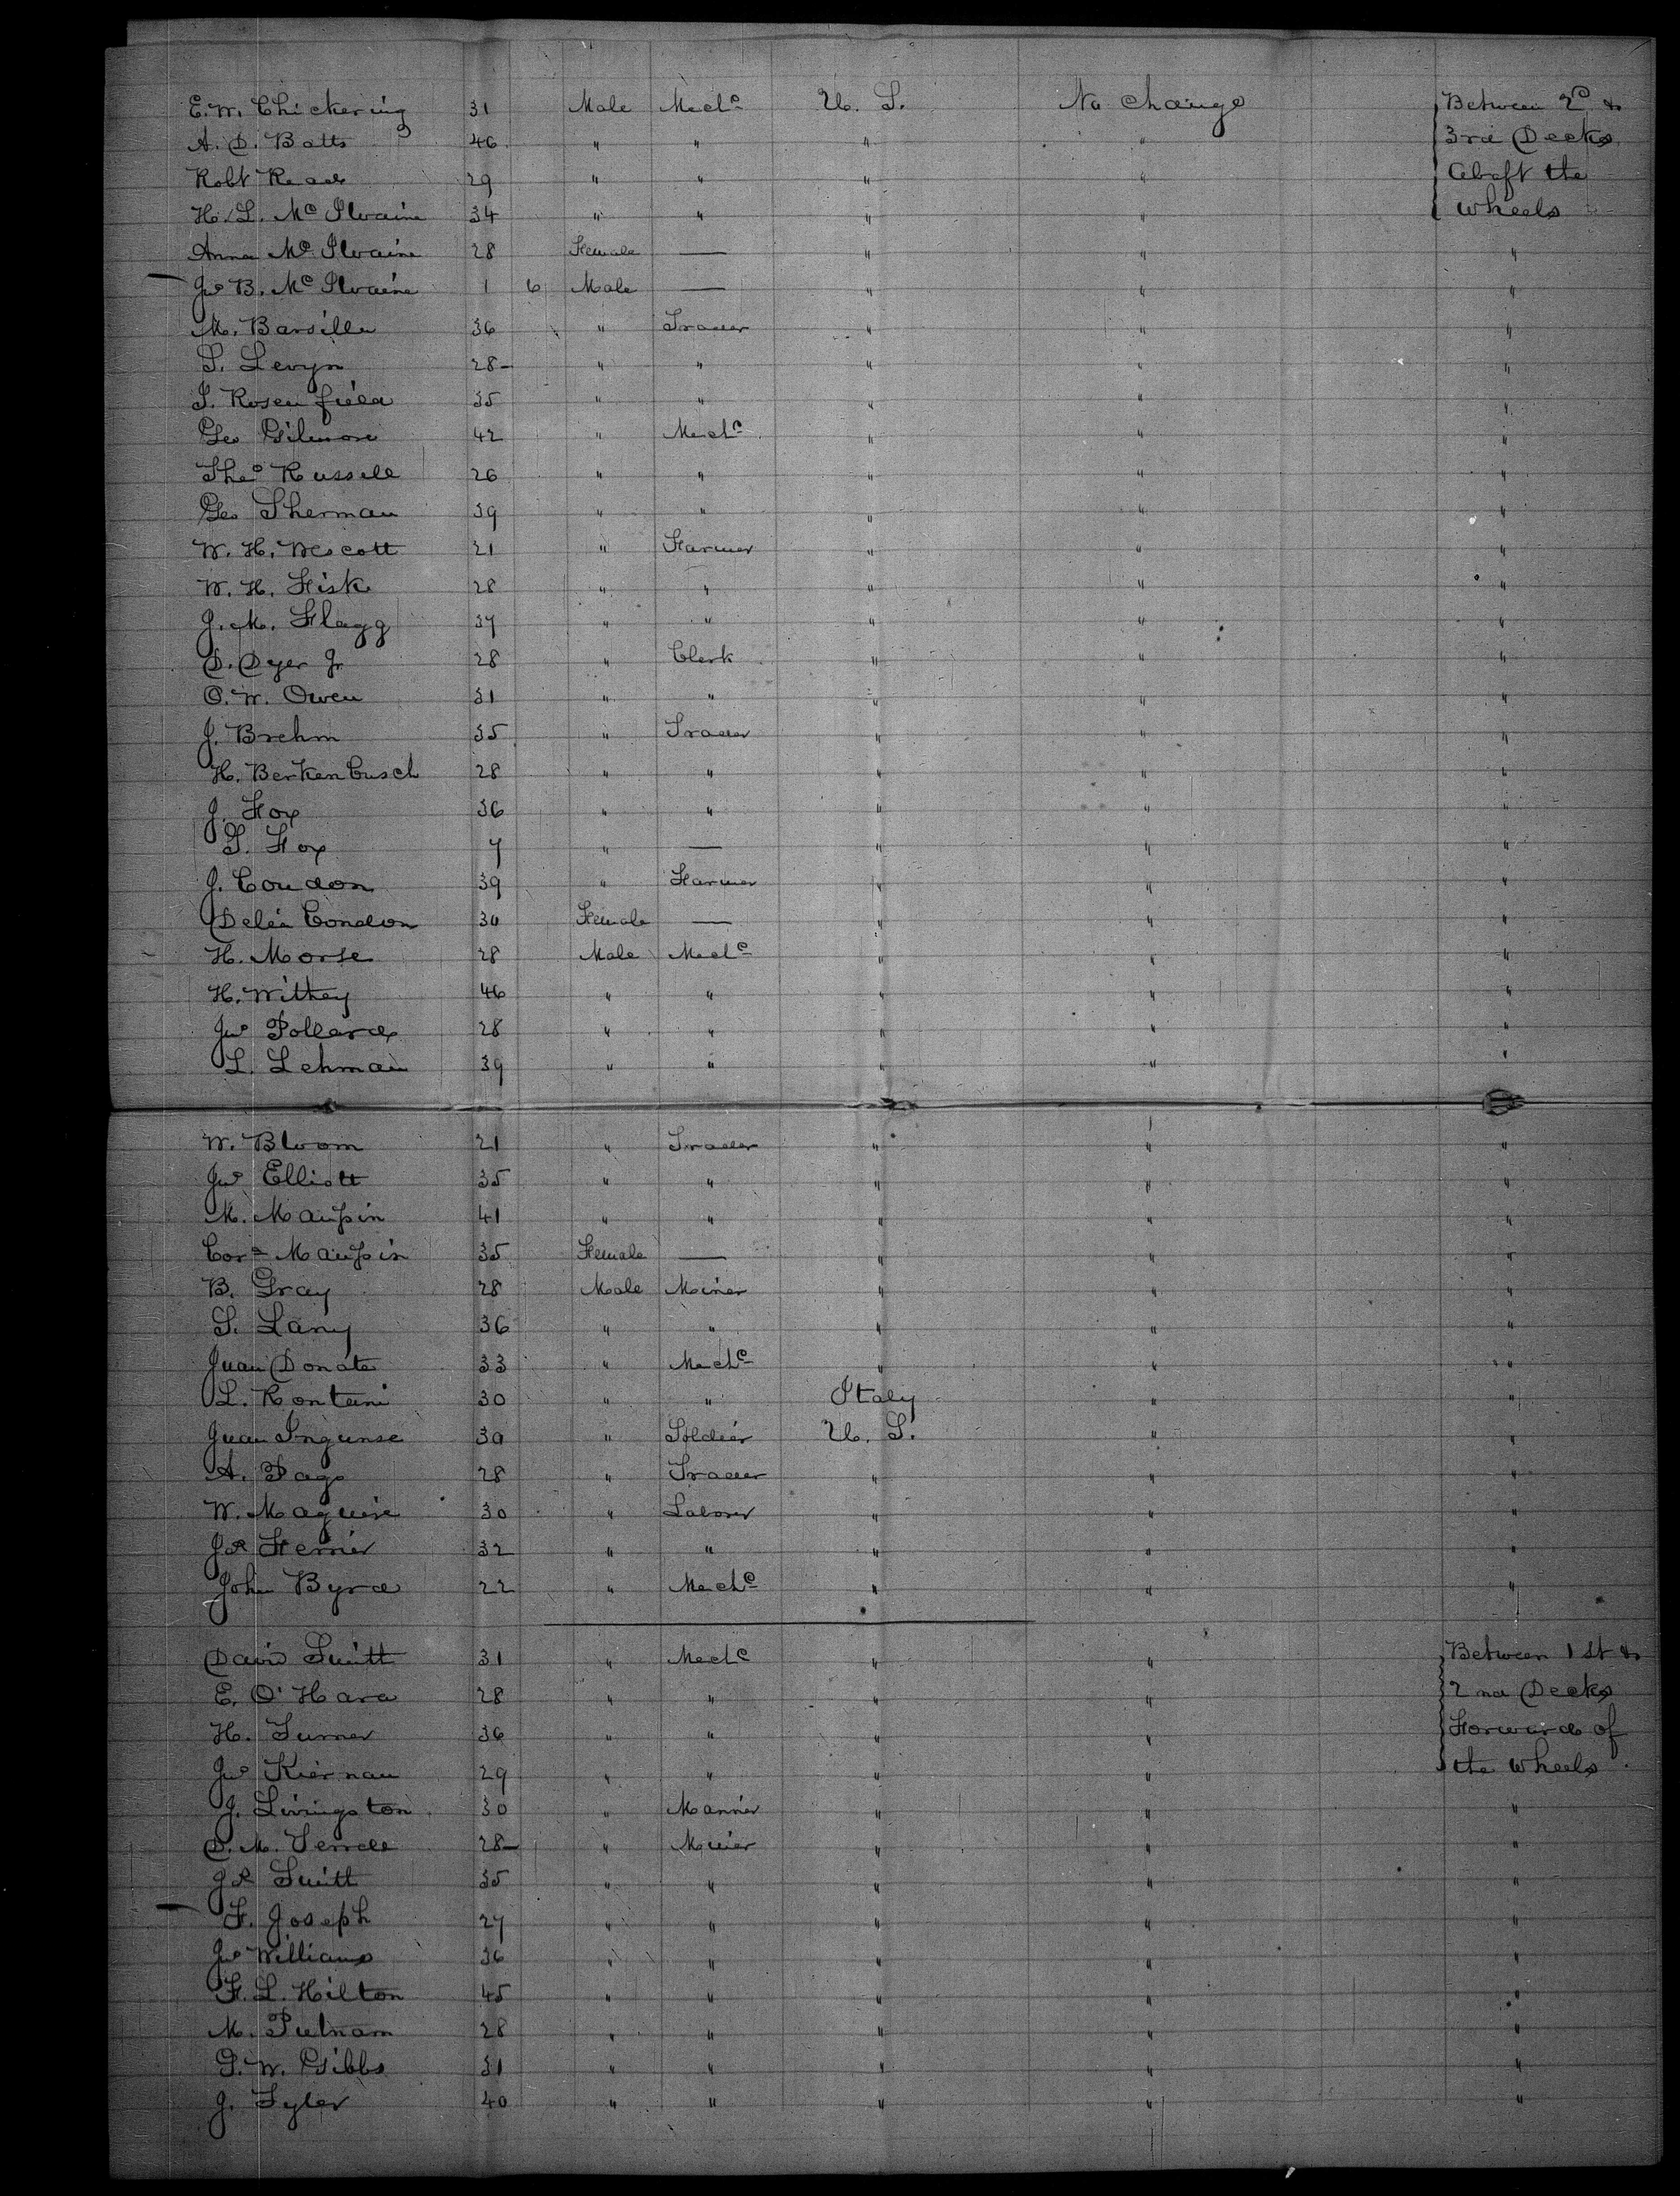 E. W. Chickering 31 Male Mechc U. S. No Change Between 2d &
A. D. Batts 46 " " " " 3rd Decks
Robt Read 29 " " " " Abaft the
H. L. McIlvaine 34 " " " " Wheels
Anna McIlvaine 28 Female — " " "
Jno B. McIlvaine 1 6 Male — " " "
M. Barsilla 36 " Trader " " "
S. Levyn 28 " " " " "
S. Rosenfield 35 " " " " "
Geo Gilmore 42 " Mechc " " "
Theo Russell 26 " " " " "
Geo Sherman 39 " " " " "
W. H. Wescott 21 " Farmer " " "
W. H. Fisk 28 " " " " "
J. M. Flagg 37 " " " " "
D. Dyer Jr 28 " Clerk " " "
O. W. Owen 31 " " " " "
J. Brehm 35 " Trader " " "
H. Berkenbusch 28 " " " " "
J. Fox 36 " " " " "
S. Fox 7 " — " " "
J. Condon 39 " Farmer " " "
Delia Condon 30 Female — " " "
H. Morse 28 Male Mechc " " "
H. Withey 46 " " " " "
Jno Pollard 28 " " " " "
L. Lehman 39 " " " " "
W. Bloom 21 " Trader " " "
Jno Elliott 35 " " " " "
M. Maupin 41 " " " " "
Cora Maupin 35 Female — " " "
B. Gray 28 Male Miner " " "
S. Lany 36 " " " " "
Juan Donate 33 " Mechc " " "
L. Rontani 30 " " Italy " "
Juan 30 " Soldier U. S. " "
A. Page 28 " Trader " " "
W. Maguire 30 " Laborer " " "
Jas Ferrier 32 " " " " "
John Byrd 22 " Mechc " " "
David Smith 31 " Mechc " " Between 1st &
E. O'Hara 28 " " " " 2nd Decks
H. Turner 36 " " " " Forward of
Jno Kiernan 29 " " " " the Wheels
J. Livingston 30 " Mariner " " "
D. M. Terrell 28 " Miner " " "
Jas Smith 35 " " " " "
F. Joseph 27 " " " " "
Jno Williams 36 " " " " "
F. L. Hilton 45 " " " " "
M. Putnam 28 " " " " "
G. W. Gibbs 31 " " " " "
J. Tyler 40 " " " " "